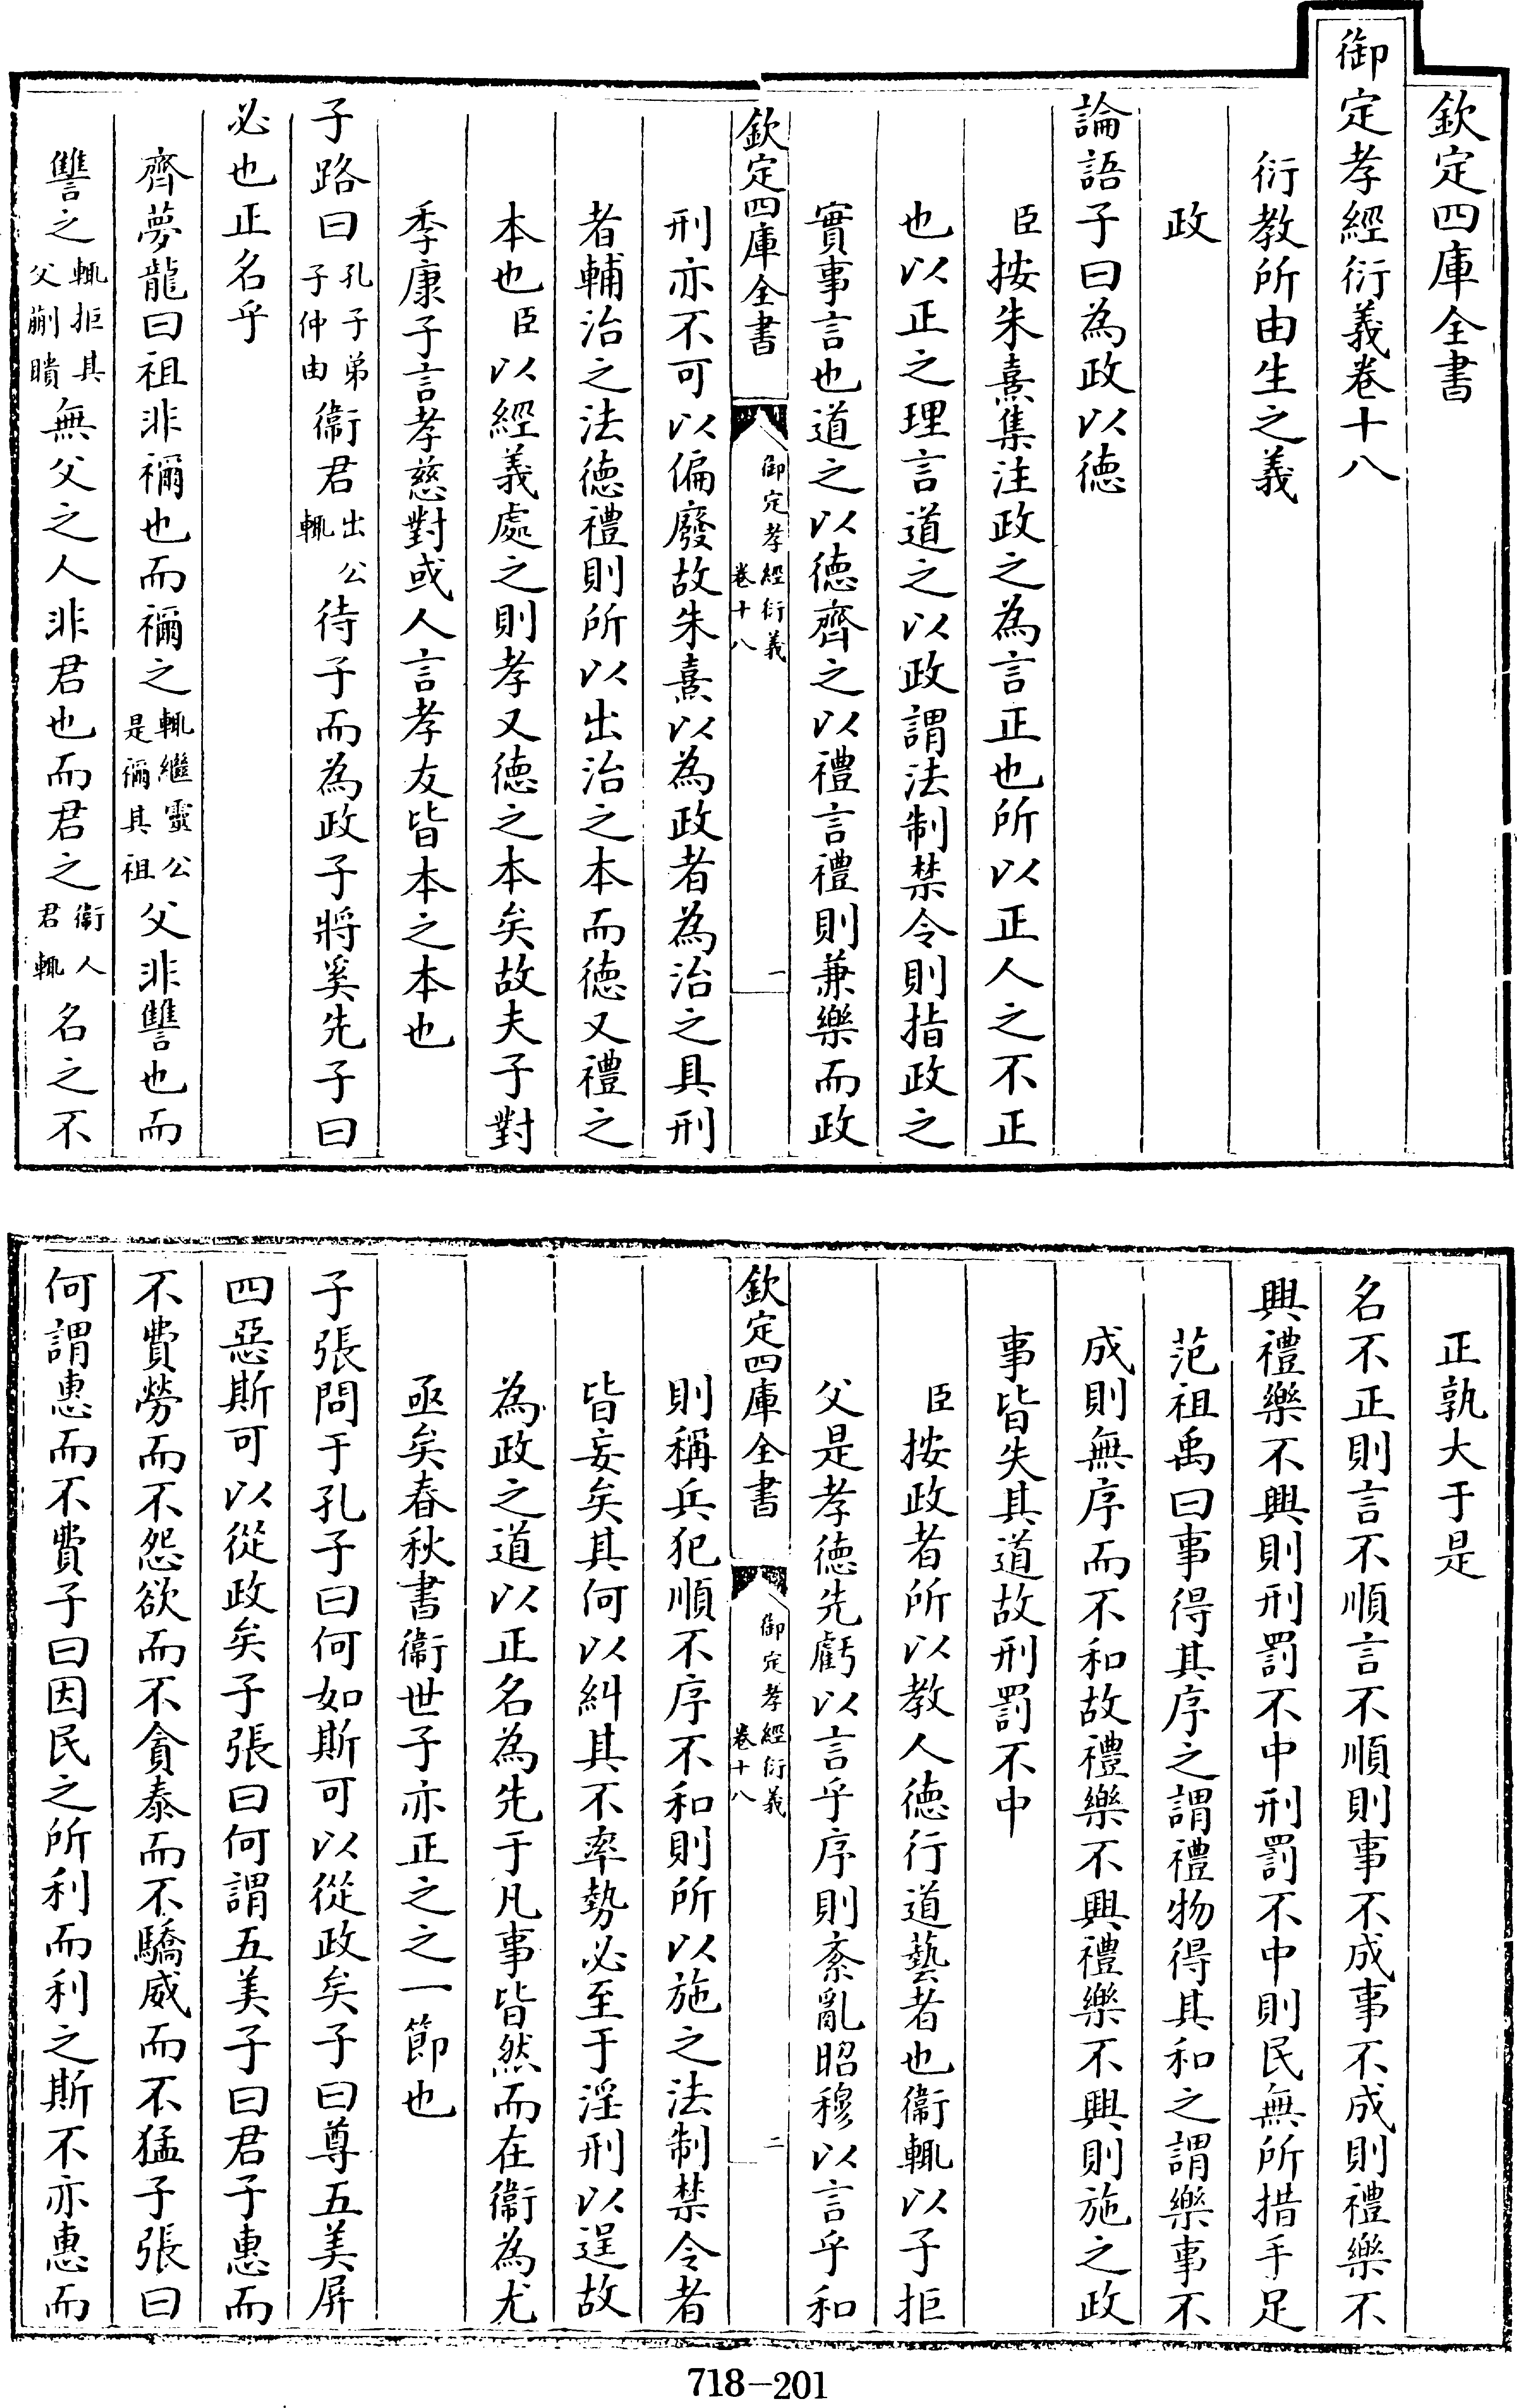 欽定四庫全書
御定孝經衍義卷十八
衍教所由生之義
政
論語子曰為政以徳
臣按朱熹集注政之為言正也所以正人之不正
也以正之理言道之以政謂法制禁令則指政之
實事言也道之以徳齊之以禮言禮則兼樂而政
欽定四庫全書
御定孝經衍義
卷十八
一
刑亦不可以偏廢故朱熹以為政者為治之具刑
者輔治之法徳禮則所以出治之本而徳又禮之
本也臣以經義處之則孝又徳之本矣故夫子對
季康子言孝慈對或人言孝友皆本之本也
子路曰孔子弟子仲由衞君出公輒待子而為政子將奚先子曰
必也正名乎
齊夢龍曰祖非禰也而禰之輒繼靈公是禰其祖父非讐也而
讐之輒拒其父蒯聵無父之人非君也而君之衞人君輒名之不
正孰大于是
名不正則言不順言不順則事不成事不成則禮樂不
興禮樂不興則刑罰不中刑罰不中則民無所措手足
范祖禹曰事得其序之謂禮物得其和之謂樂事不
成則無序而不和故禮樂不興禮樂不興則施之政
事皆失其道故刑罰不中
臣按政者所以教人徳行道藝者也衞輒以子拒
父是孝徳先虧以言乎序則紊亂昭穆以言乎和
欽定四庫全書
御定孝經衍義
卷十八
二
則稱兵犯順不序不和則所以施之法制禁令者
皆妄矣其何以糾其不率勢必至于淫刑以逞故
為政之道以正名為先于凡事皆然而在衞為尤
亟矣春秋書衞世子亦正之之一節也
子張問于孔子曰何如斯可以從政矣子曰尊五美屏
四惡斯可以從政矣子張曰何謂五美子曰君子惠而
不費勞而不怨欲而不貪泰而不驕威而不猛子張曰
何謂惠而不費子曰因民之所利而利之斯不亦惠而
718-201